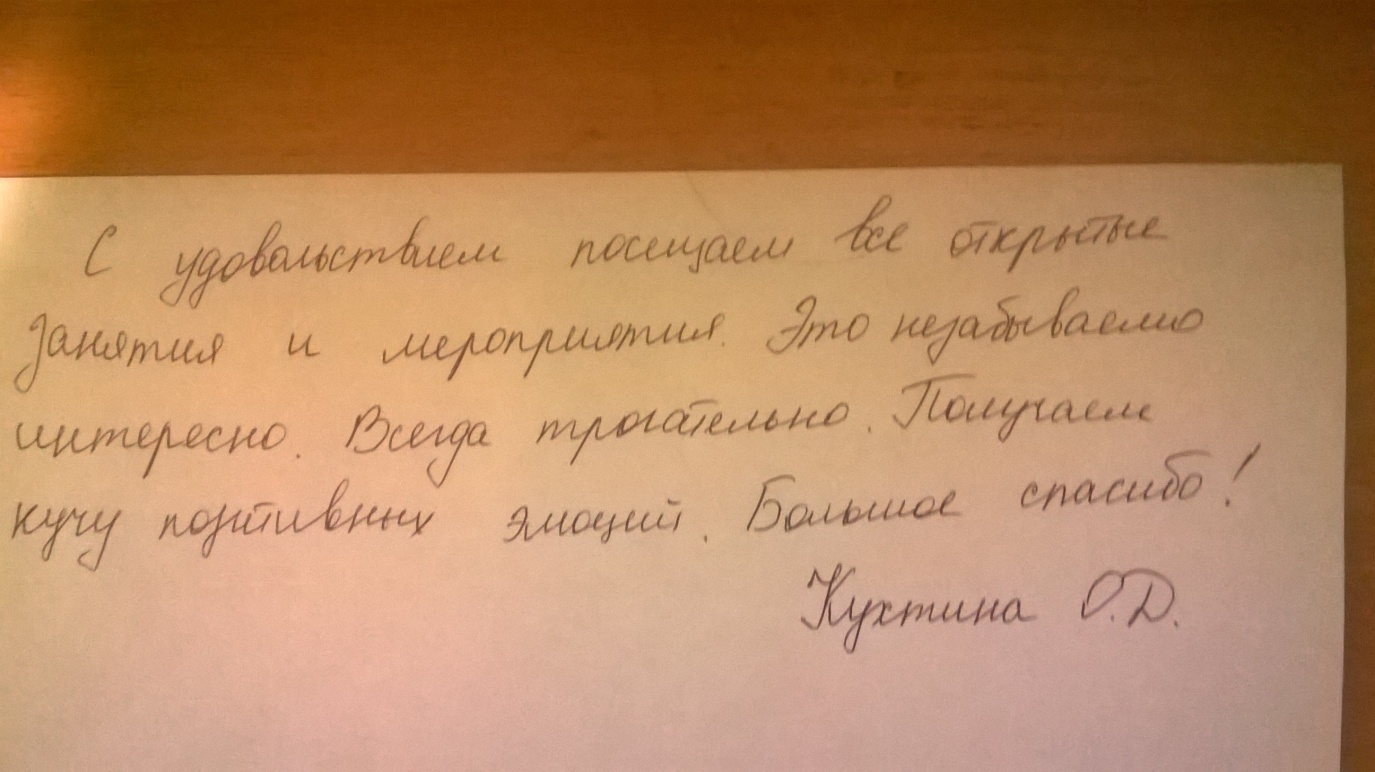 С удовольствием посещаем все открытые
занятия и мероприятия. Это незабываемо
интересно. Всегда трогательно. Получаем
кучу позитивных эмоций. Большое спасибо!
Кухтина О.Д.